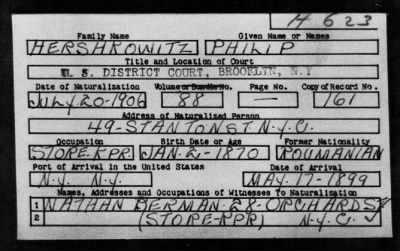 H 623
Family Name Given Name or Names
HERSHKOWITZ PHILIP
Title and Location of Court
U. S. DISTRICT COURT, BROOKLYN, N.Y
Date of Naturalization Volume or Bundle No. Page No. Copy of Record No.
JULY-20-1906 88 — 161
Address of Naturalized Person
49-STANTON ST. N.Y.C.
Occupation Birth Date or Age Former Nationality
STORE-KPR. JAN. 2-1870 ROUMANIAN
Port of Arrival in the United States Date of Arrival
N.Y. N.Y. MAY-17-1899
Names, Addresses and Occupations of Witnesses to Naturalization
1 NATHAN BERMAN-28-ORCHARD ST
2 (STORE-KPR) N.Y.C.